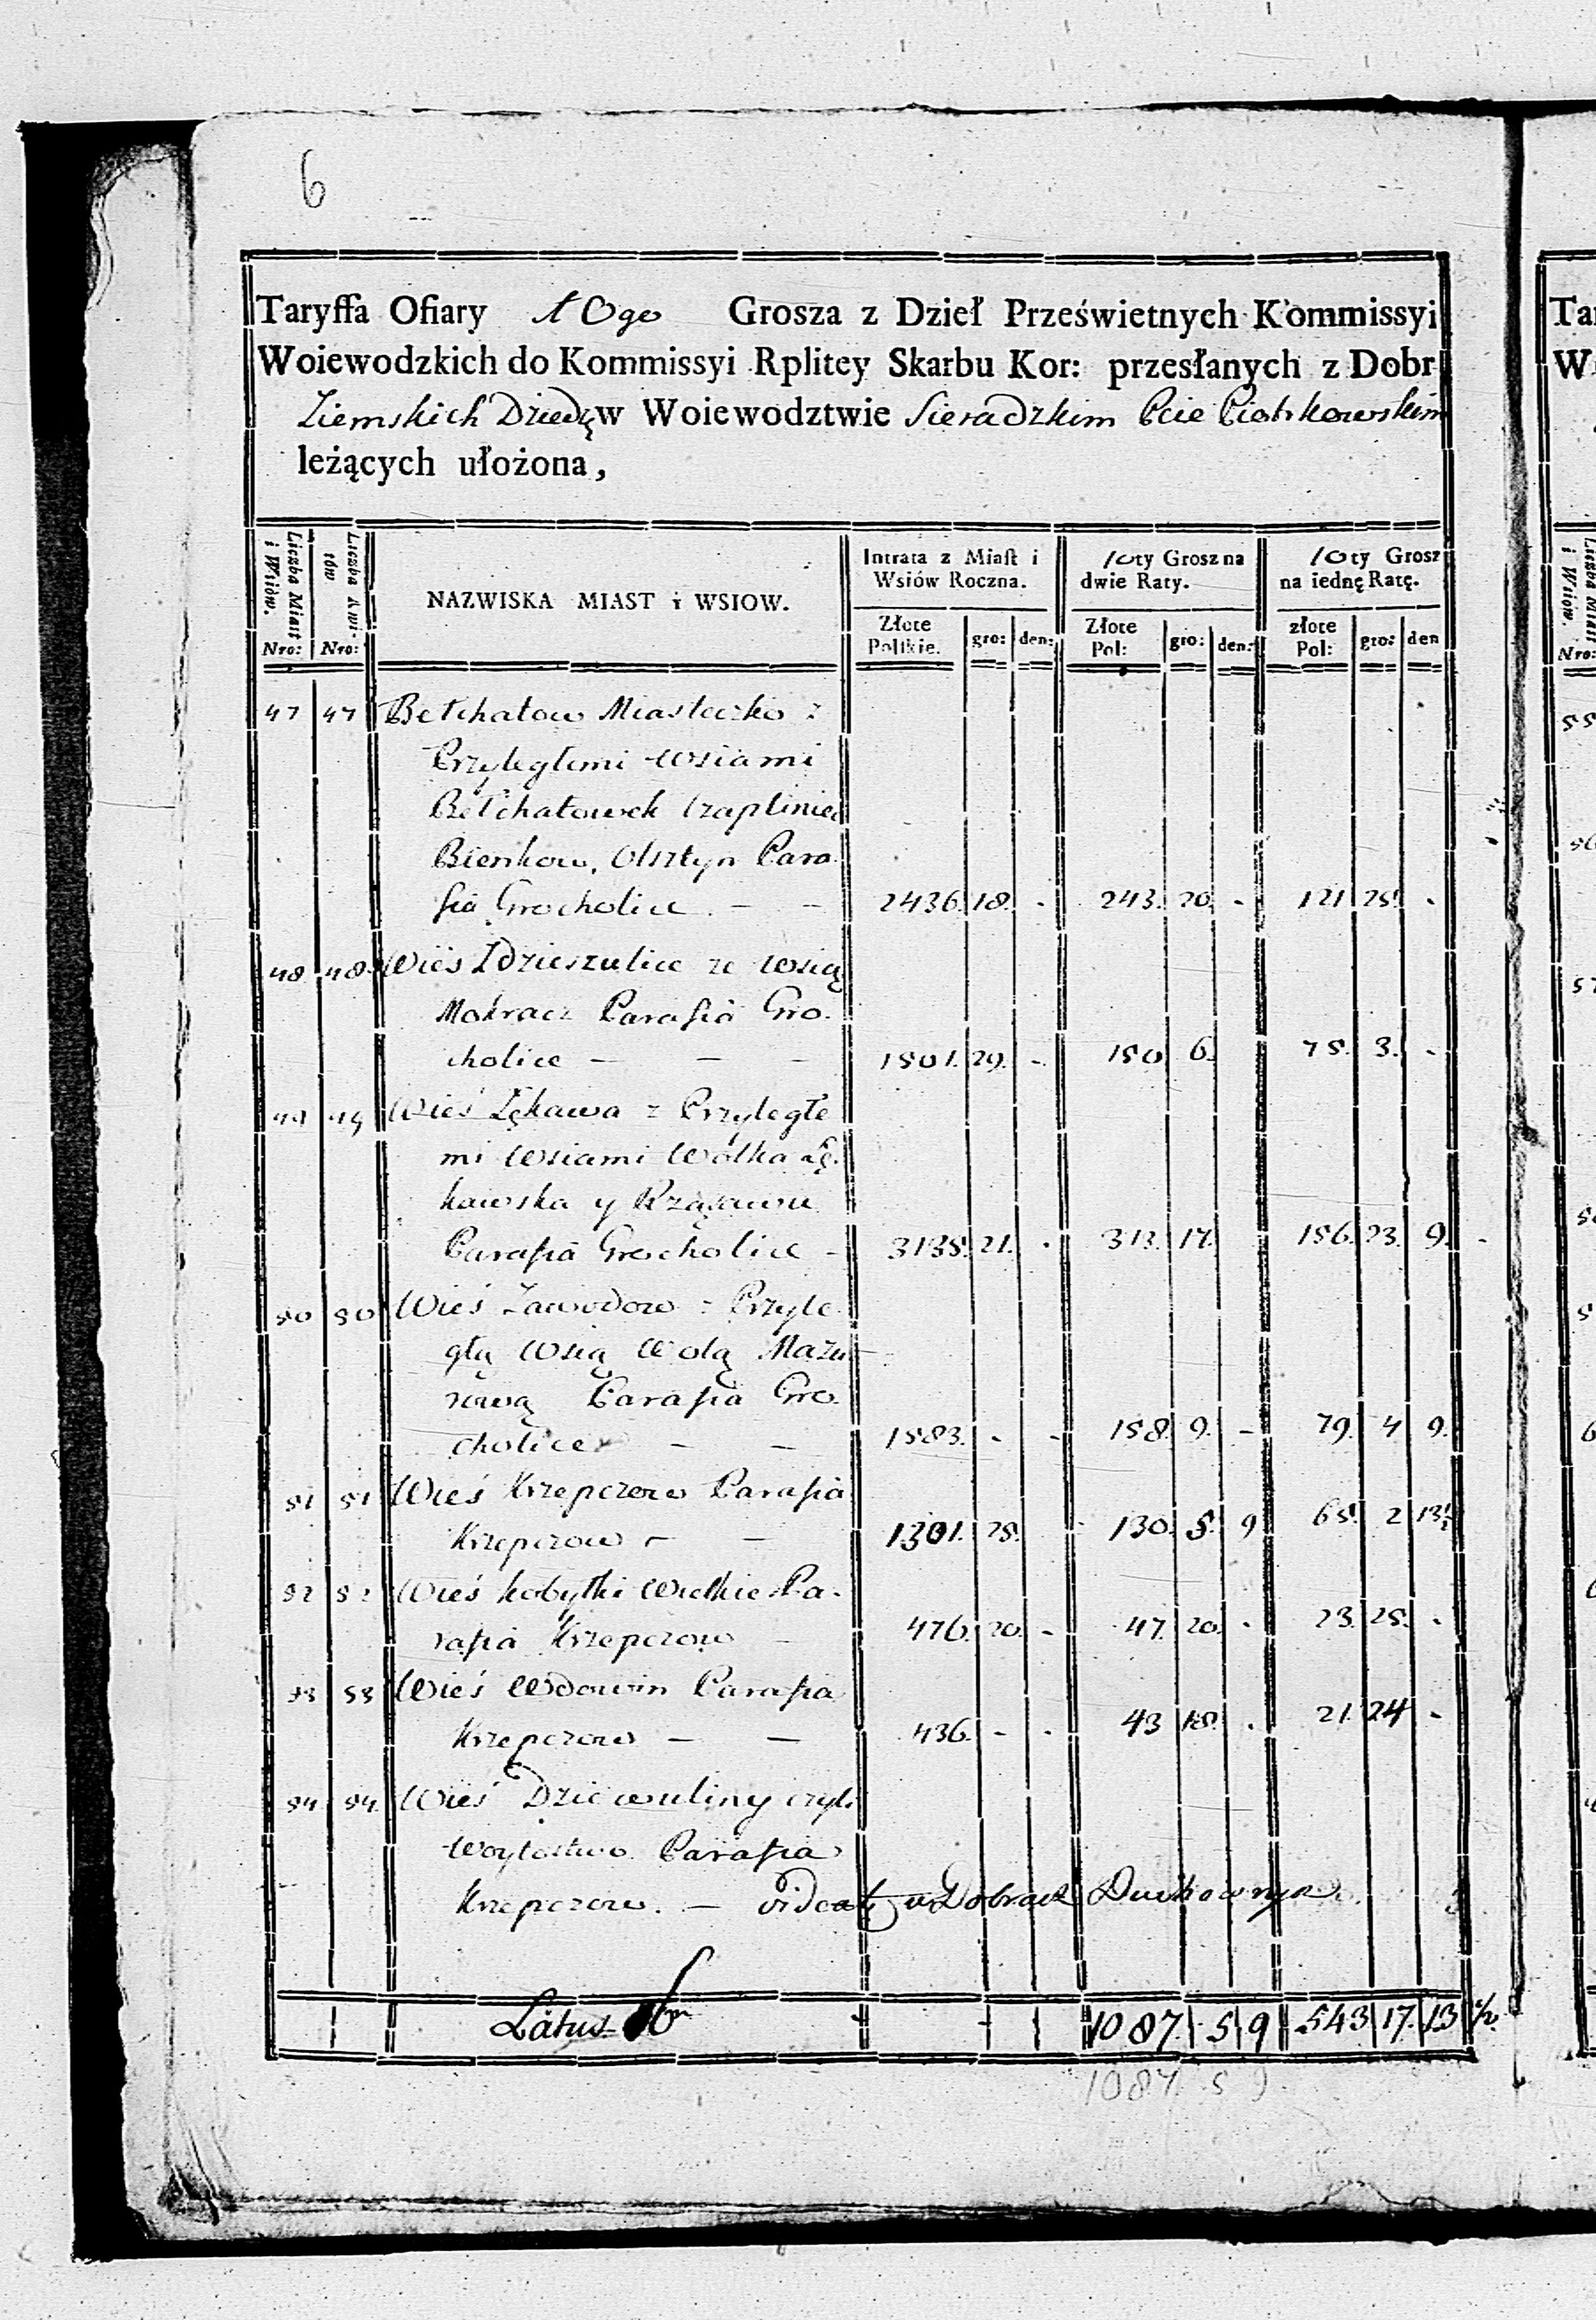 6
Taryffa Ofiary 10go Grosza z Dzieł Prześwietnych Kommissyi
Woiewodzkich do Kommissyi Rplitey Skarbu Kor: przesłanych z Dobr
Ziemskich Dziedz w Woiewodztwie Sieradzkim Pcie Piotrkowskim
leżących ułożona,
Liczba Miast i Wsiów. Nro: Liczba Kwitów Nro: NAZWISKA MIAST i WSIOW. Intrata z Miast i Wsiów Roczna. 10ty Grosz na dwie Raty. 10ty Grosz na iednę Ratę.
Złote Polskie. gro: den: Złote Pol: gro: den: złote Pol: gro: den
47 47 Bełchatow Miasteczko z
Przyległemi wsiami
Bełchatowek Czapliniec
Bienkow, Olsztyn Para
fia Grocholice. — — 2436. 18. - 243. 20. - 121 25. -
48 48 Wieś Zdzieszulice ze wsią
Mokracz Parafia Gro.
cholice — — — 1501. 29. - 150 6. 75. 3. -
49 49 Wieś Łękawa z Przyległe
mi wsiami Wolka Łę.
kawska y Rząsawa
Parafia Grocholice - 3135. 21. - 313. 17. 156. 23. 9.
50 50 Wieś Zawodow z Przyle
głą wsią Wolą Mazu
rową Parafia Gro.
cholice — — 1583. - - 158. 9. - 79. 4 9.
51 51 Wieś Krzepczow Parafia
Krzepczow — — 1301. 28. 130. 5. 9 65. 2 13½
52 52 Wieś Kobyłki Wielkie Pa.
rafia Krzepczow — 476. 20. - 47. 20. - 23. 25. -
53 53 Wieś Wdowin Parafia
Krzepczow — — 436. - - 43 18. - 21. 24 -
54 54 Wieś Dziewuliny czyli
Woytostwo Parafia
Krzepczow. — videat w Dobrach Duchownych.
Latus 1087. 5 9 543 17. 13 ½.
1087. 5 9